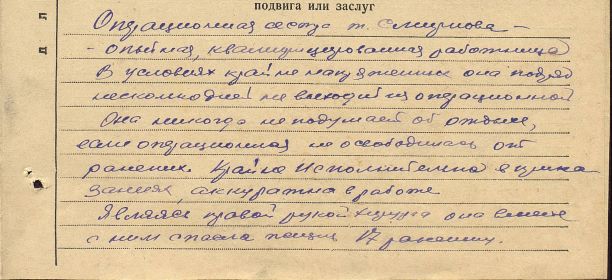 подвига или заслуг
Операционная сестра т. Смирнова —
- опытная, квалифицированная работница
В условиях крайне напряженных она подряд
несколько дней не выходит из операционной
Она никогда не подумает об отдыхе,
если операционная не освободилась от
раненых. Крайне исполнительна в прика
заниях, аккуратна в работе
Являясь правой рукой хирурга она вместе
с ним спасла жизнь 17 раненым.